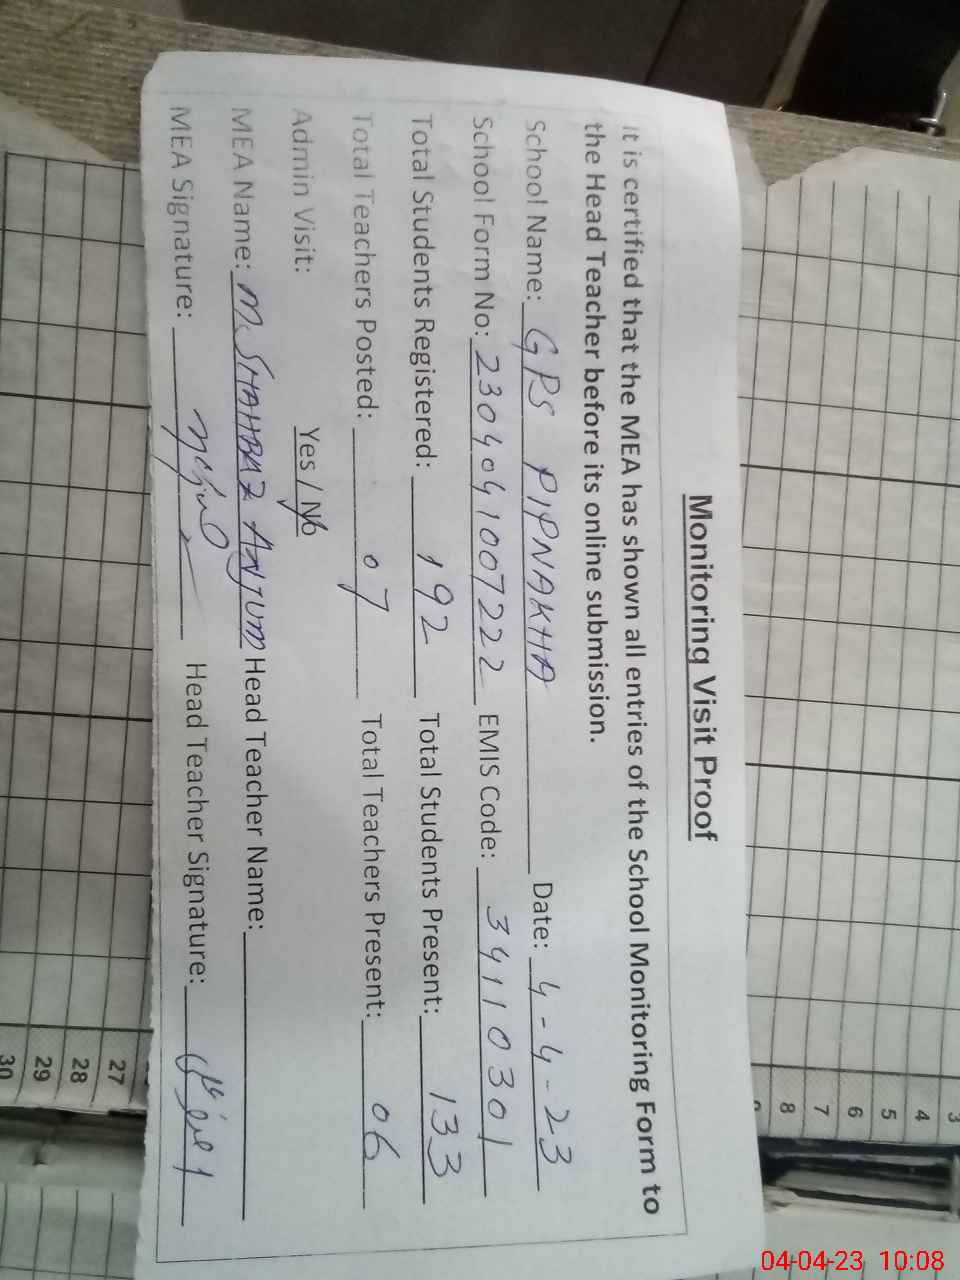 Monitoring Visit Proof
It is certified that the MEA has shown all entries of the School Monitoring Form to
the Head Teacher before its online submission.
School Name: GPS PIPNAKHA Date: 4-4-23
School Form No: 2304041007222 EMIS Code: 34110301
Total Students Registered: 192 Total Students Present: 133
Total Teachers Posted: 07 Total Teachers Present: 06
Admin Visit: Yes / No
MEA Name: M. SHAHBAZ ANJUM Head Teacher Name:
MEA Signature: Head Teacher Signature:
3
4
5
6
7
8
27
28
29
30
04-04-23 10:08